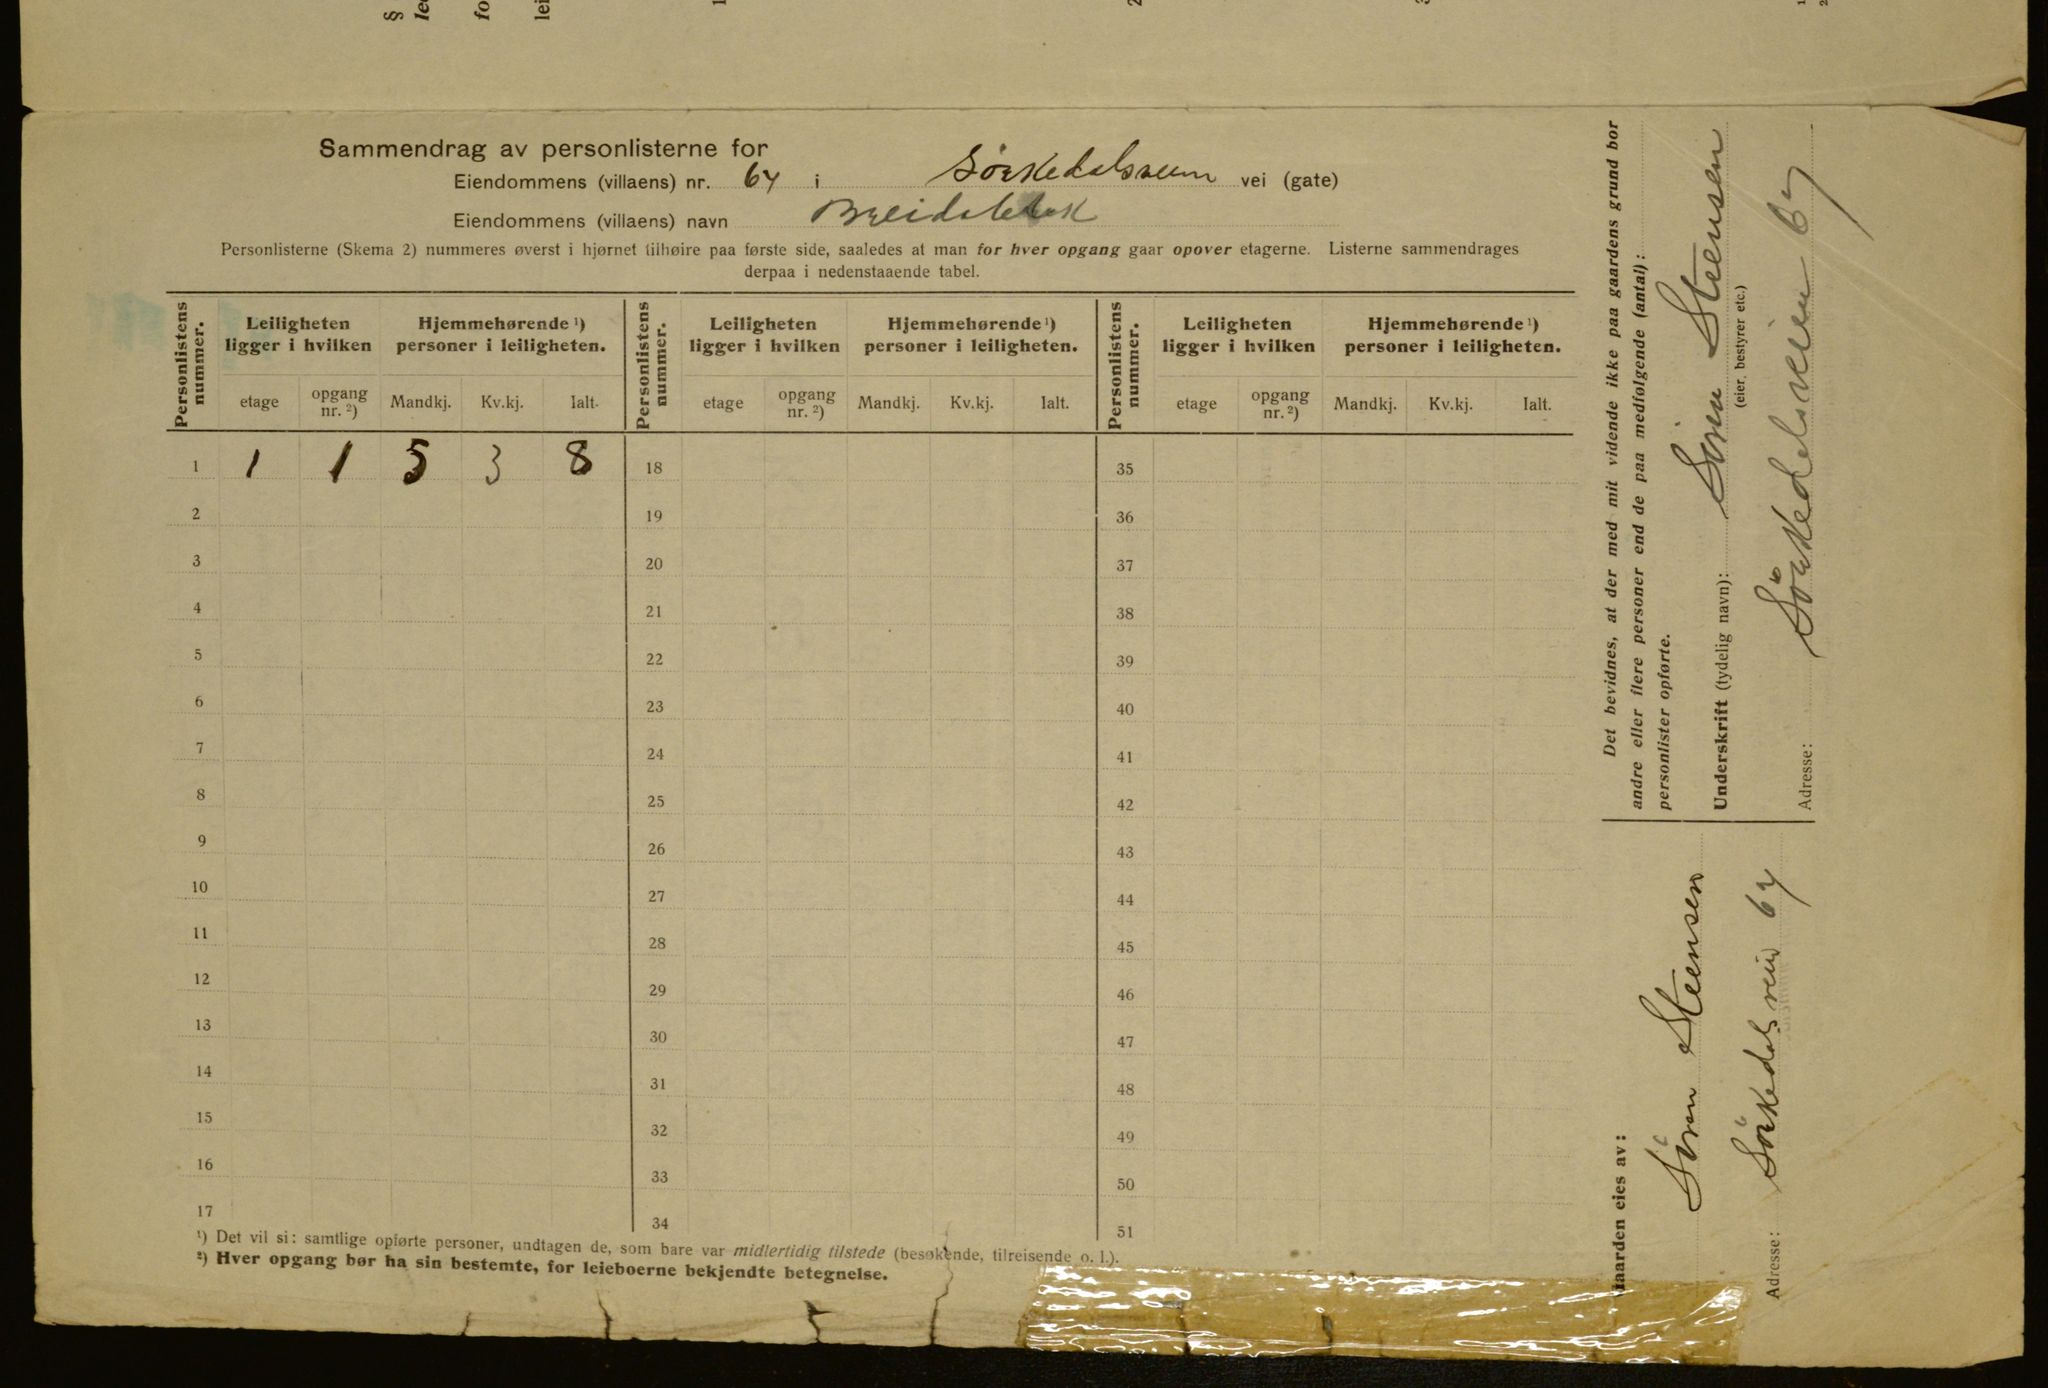 §
1
2
Sammendrag av personlisterne for
Eiendommens (villaens) nr. 67 i Sörkedalsveien vei (gate)
Eiendommens (villaens) navn
Personlisterne (Skema 2) nummeres øverst i hjørnet tilhøire paa første side, saaledes at man for hver opgang gaar opover etagerne. Listerne sammendrages
derpaa i nedenstaaende tabel.
Personlistens nummer. Leiligheten ligger i hvilken Hjemmehørende ¹) personer i leiligheten. Personlistens nummer. Leiligheten ligger i hvilken Hjemmehørende ¹) personer i leiligheten. Personlistens nummer. Leiligheten ligger i hvilken Hjemmehørende ¹) personer i leiligheten.
etage opgang nr. ²) Mandkj. Kv.kj. Ialt. etage opgang nr. ²) Mandkj. Kv.kj. Ialt. etage opgang nr. ²) Mandkj. Kv.kj. Ialt.
1 1 1 5 3 8 18 35
2 19 36
3 20 37
4 21 38
5 22 39
6 23 40
7 24 41
8 25 42
9 26 43
10 27 44
11 28 45
12 29 46
13 30 47
14 31 48
15 32 49
16 33 50
17 34 51
¹) Det vil si: samtlige opførte personer, undtagen de, som bare var midlertidig tilstede (besøkende, tilreisende o. l.).
²) Hver opgang bør ha sin bestemte, for leieboerne bekjendte betegnelse.
Det bevidnes, at der med mit vidende ikke paa gaardens grund bor
andre eller flere personer end de paa medfølgende (antal):
personlister opførte.
Underskrift (tydelig navn): Sören Steensen
(eier, bestyrer etc.)
Adresse: Sörkedalsveien 67
Gaarden eies av:
Sören Steensen
Adresse: Sörkedalsveien 67